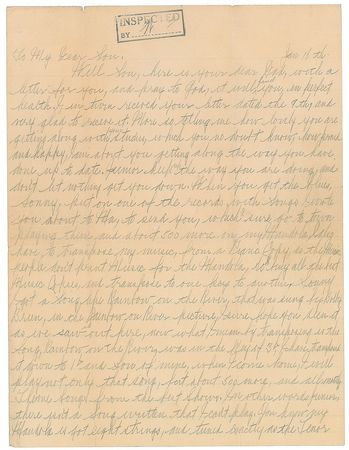 INSPECTED
BY
To My Dear Son. Jan 18 th
Well Son, here is your dear Dad, with a
letter for you, and pray to God, it will find you, in perfect
health, I in turn received your letter dated the 9 th, and
very glad to receive it. Also telling me how lovely you are
getting along with studies, which you no doubt know how proud
and happy, I am about you getting along the way you have
done up to date. Junior keep the way you are doing, and
don't let nothing get you down. When you get the blues,
Sonny, put on one of the records, with Songs I wrote
you about to Ma, to send you, which
playing them, and about 500 more on my Mandola, I only
have to transpose my music, from a Piano Copy, as the Music
people don't print Music for the Mandola, so I buy all the
Music I transpose to one Key to another. Sonny
I got a Song, the Rainbow on the River, that was sung by Bobby
Breen, in the Rainbow on River picture, I sure hope you seen it
as we saw it, now what I mean by transposing is the
Song, Rainbow on the River, was in the Key of 3 Sharp, transposed
it down to 1 and Son of mine, when I come home, I will
play not only that song, but about 500 more, and all
Songs from the best shows. In other words Junior,
there isn't a Song written that I can't play. You know my
Mandola is got eight strings, and tuned exactly as the Tenor